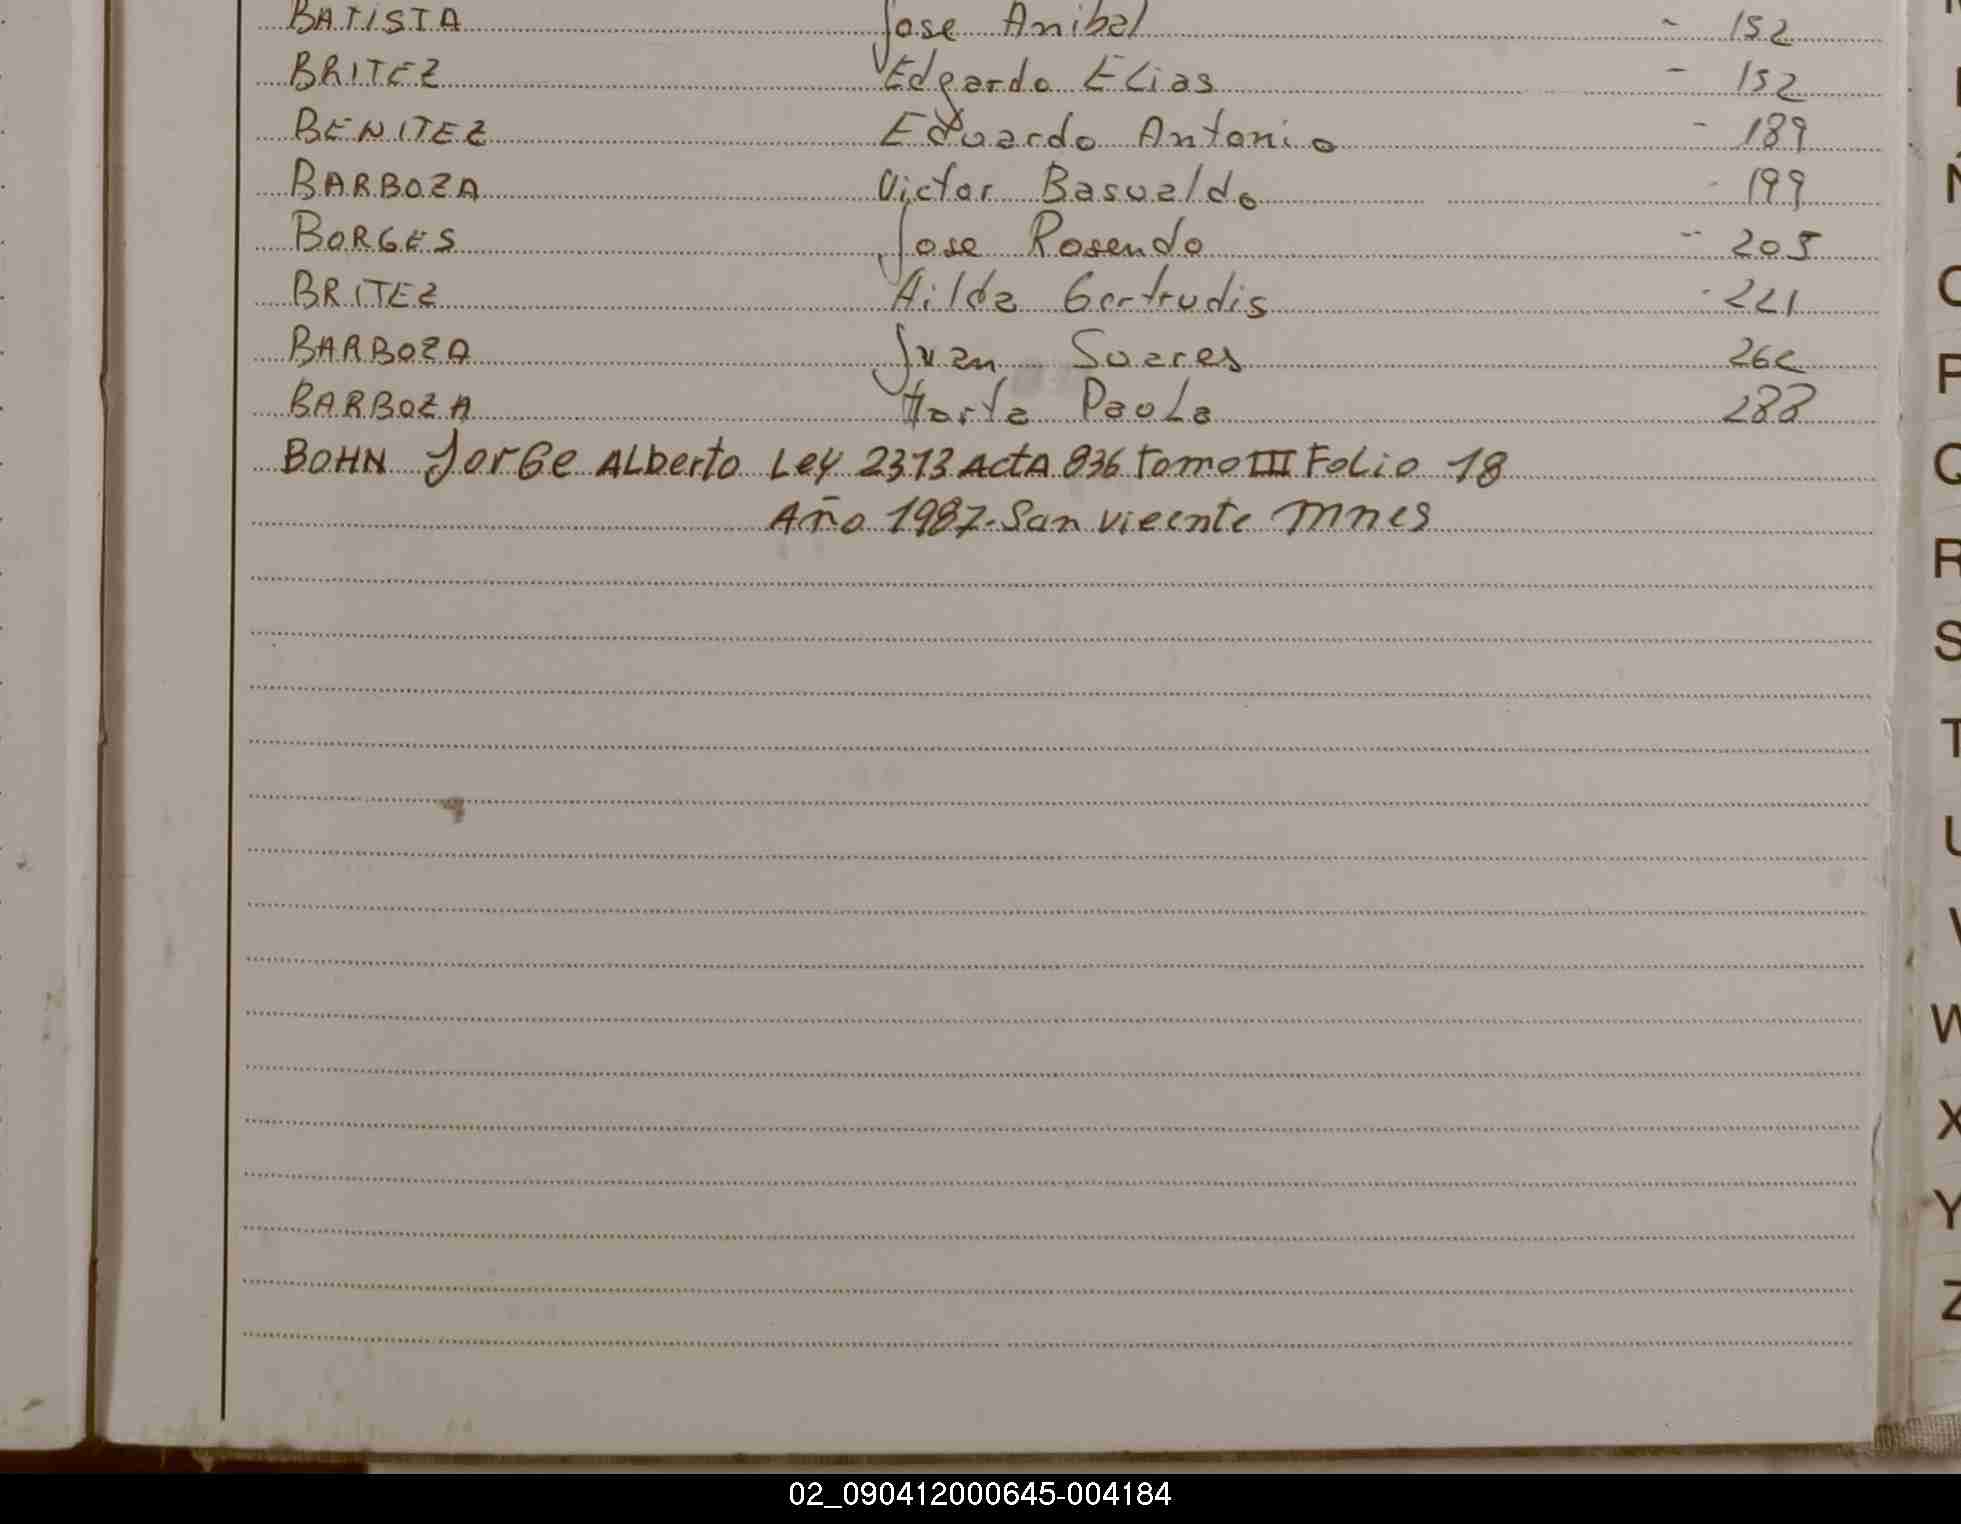 BATISTA Jose Anibal - 152
BRITEZ Edgardo Elias - 152
BENITEZ Eduardo Antonio - 189
BARBOZA Victor Basualdo - 199
BORGES Jose Rosendo - 205
BRITEZ Hilda Gertrudis - 221
BARBOZA Juan Suares 262
BARBOZA Marta Paola 288
BOHN Jorge Alberto Ley 2373 Acta 836 tomo III Folio 18
Año 1987. San vicente mnes
Ñ
O
P
Q
R
S
T
U
V
W
X
Y
Z
02_090412000645-004184